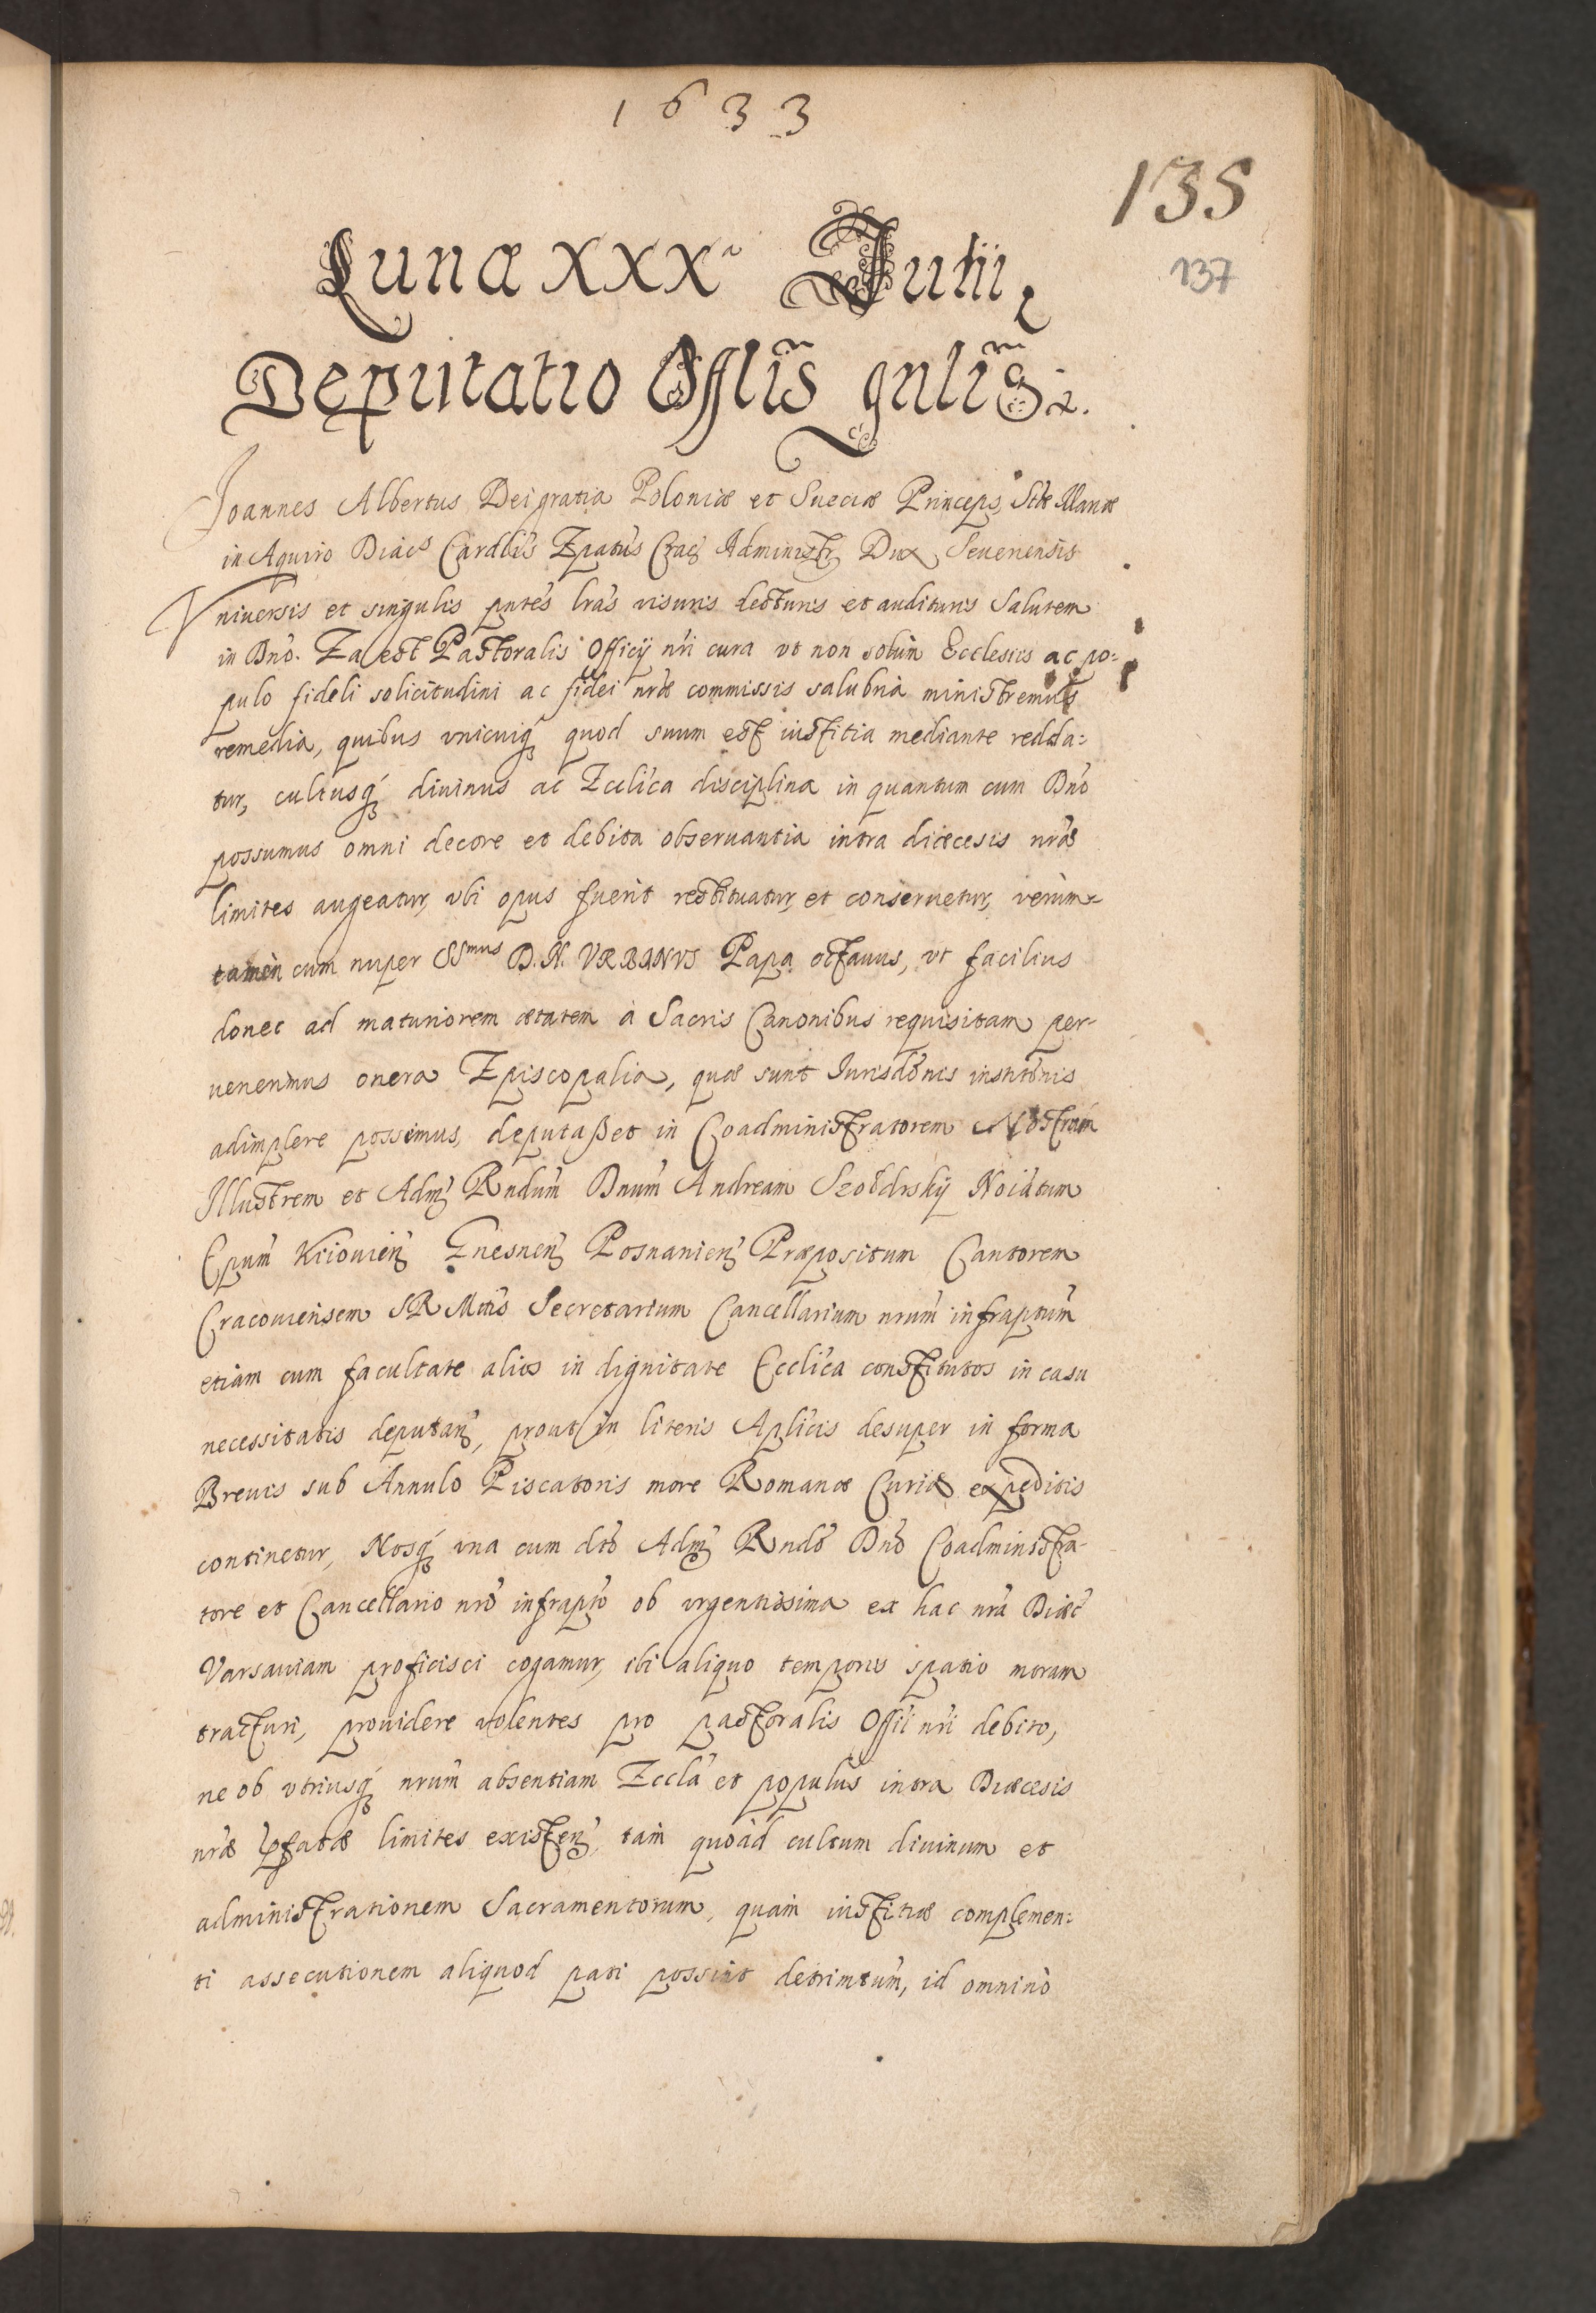 1633
135
137
Lunæ XXXa Julii
Deputatio Offlis gnlis &.
Joannes Albertus Dei gratia Poloniæ et Sueciæ Princeps Stæ Mariæ
in Aquiro Diacs Cardlis Epatus Crac Administr Dux Seuerensis
Vniuersis et singulis pntes lras visuris lecturis et audituris Salutem
in Dno. Ea est Pastoralis Officij nri cura vt non solùm Ecclesiis ac po:
pulo fideli solicitudini ac fidei nræ commissis salubria ministremus
remedia, quibus vnicuiq quod suum est iustitia mediante redda:
tur, cultusq diuinus ac Ecclica disciplina in quantum cum Dno
possumus omni decore et debita obseruantia intra diœcesis nræ
limites augeatur, vbi opus fuerit restituatur, et conseruetur, verùm-
tamèn cum nuper SSmus D. N. VRBANVS Papa octauus, vt facilius
donec ad maturiorem ætatem à Sacris Canonibus requisitam per-
uenerimus onera Episcopalia, quæ sunt Jurisdonis institonis
adimplere possimus, deputaßet in Coadministratorem Nostrum
Illustrem et Adm Rndum Dnum Andream Szołdrskij Noiatum
Epum Kiiouien Gnesnen Posnanien Præpositum Cantorem
Cracouiensem SRMtis Secretarium Cancellarium nrum infraptum
etiam cum facultate alios in dignitate Ecclica constitutos in casu
necessitatis deputan, prout in literis Aplicis desuper in forma
Breuis sub Annulo Piscatoris more Romanæ Curiæ expeditis
continetur, Nosq vna cum dto Adm Rndo Dno Coadministra-
tore et Cancellario nro infrapto ob vrgentissima ex hac nra Diæc
Varsauiam proficisci cogamur, ibi aliquo temporis spatio moram
tracturi, prouidere volentes pro pastoralis Offii nri debito,
ne ob vtriusq nrum absentiam Eccla et populus intra Diœcesis
nræ pfatæ limites existen, tam quoad cultum diuinum et
administrationem Sacramentorum, quàm iustitiæ complemen:
ti assecutionem aliquod pati possint detrimtum, id omninò